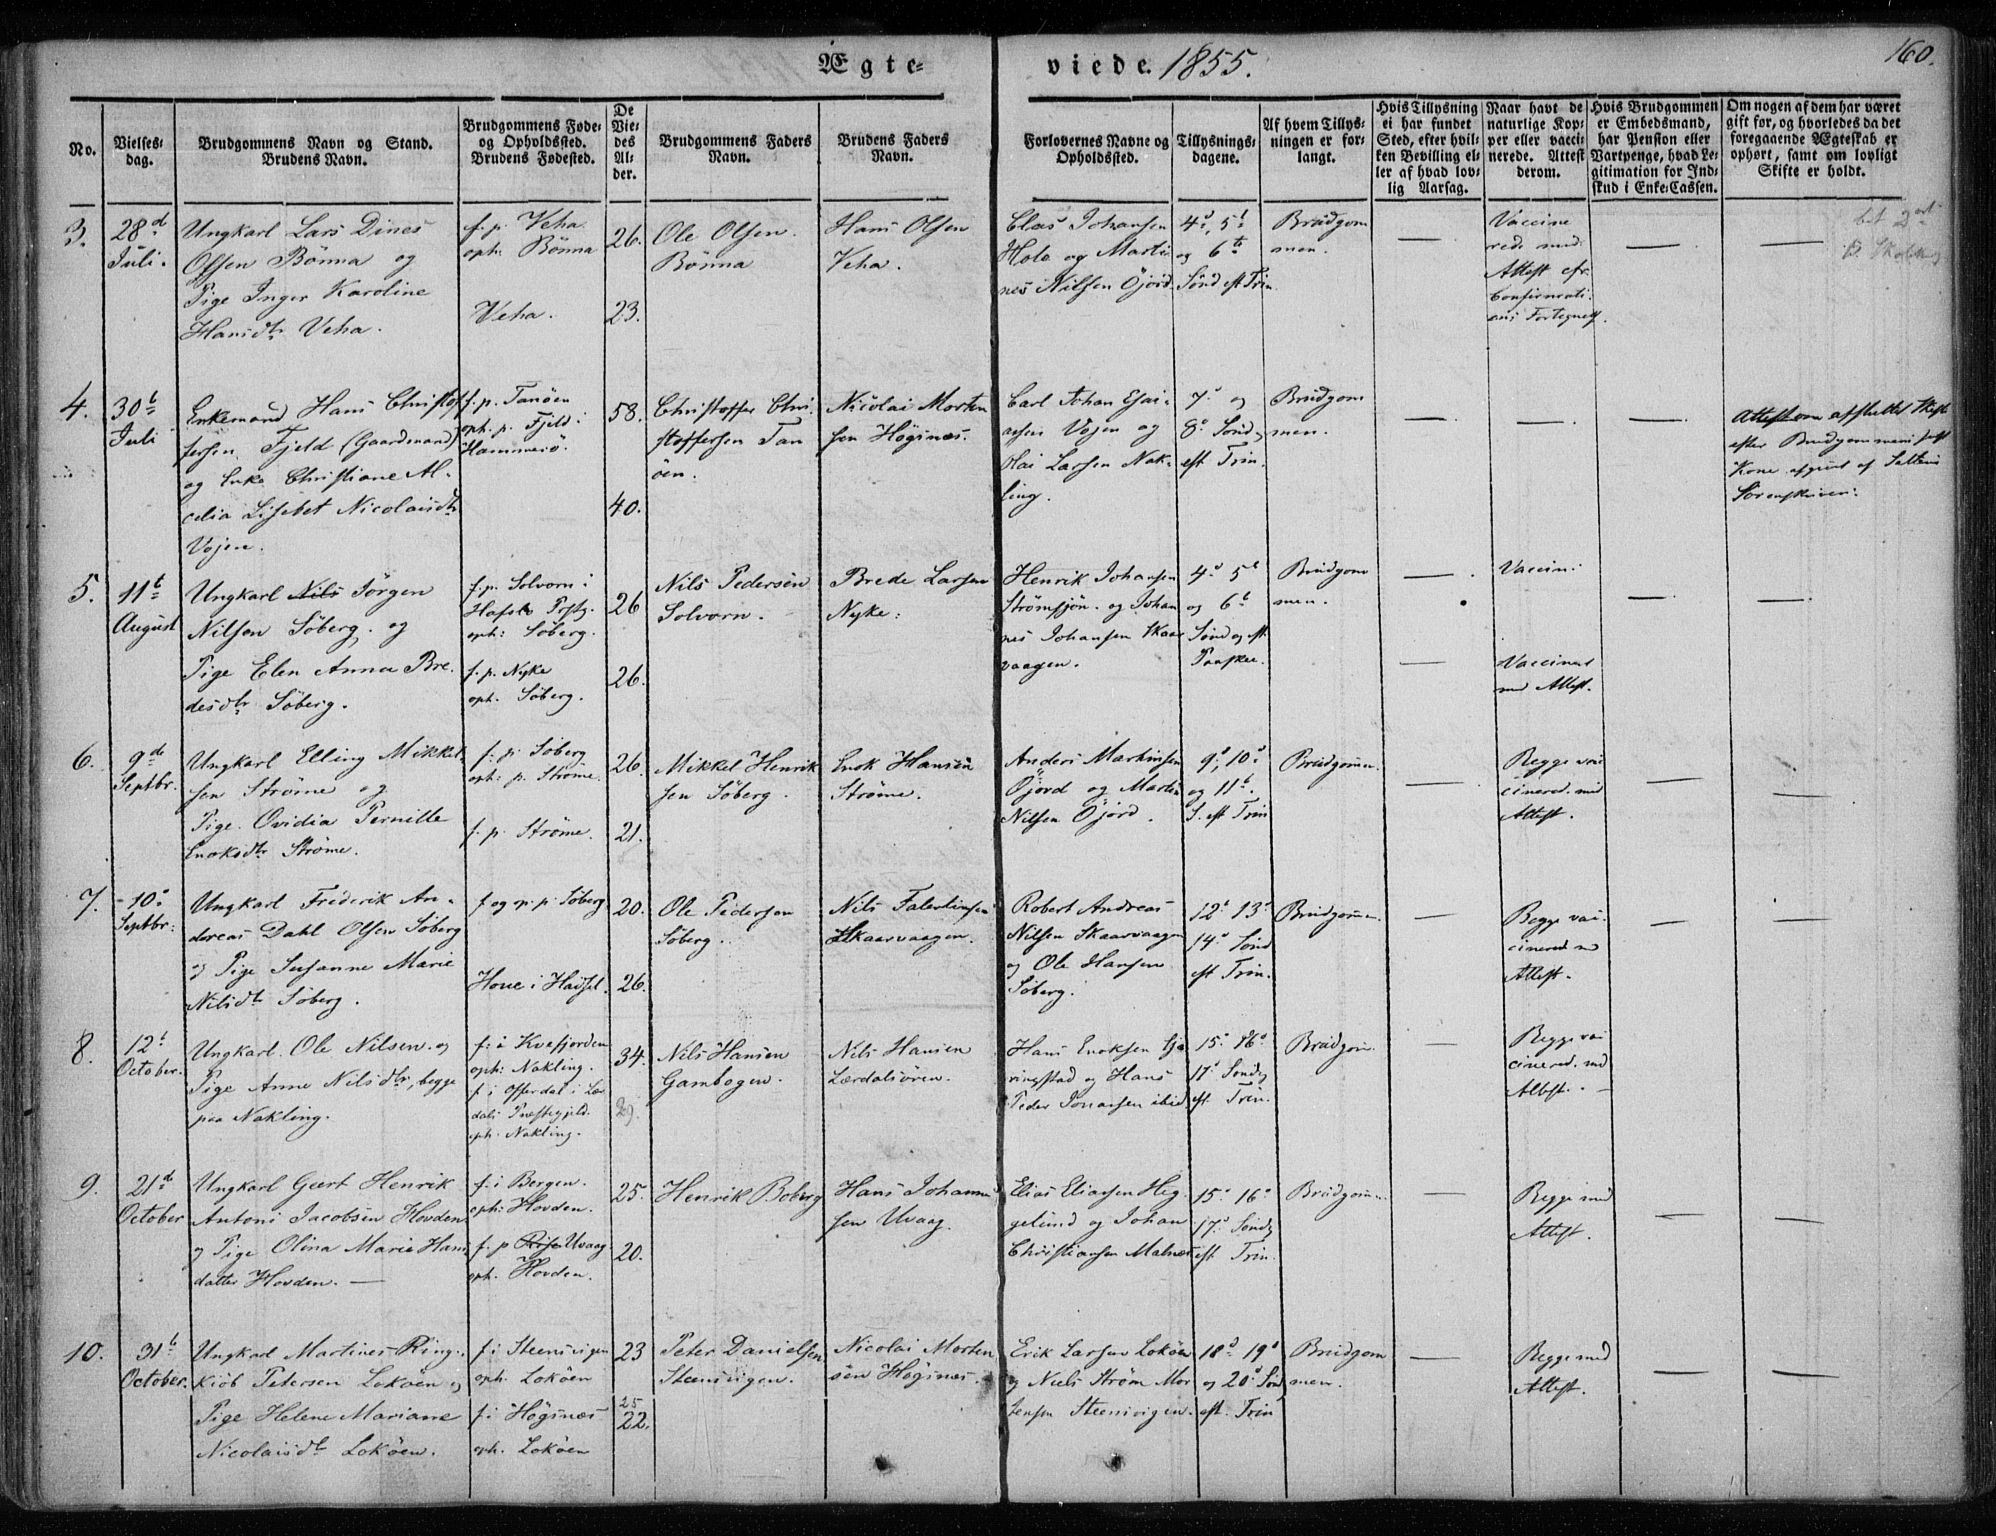 Ægte-viede 1855.
160.
No.
Vielses-dag.
Brudgommens Navn og Stand. Brudens Navn.
Brudgommens Føde- og Opholdssted. Brudens Fødested.
De Viedes Alder.
Brudgommens Faders Navn.
Brudens Faders Navn.
Forlovernes Navne og Opholdssted.
Tillysnings-dagene.
Af hvem Tillysningen er forlangt.
Hvis Tillysning ei har fundet Sted, efter hvilken Bevilling eller af hvad lovlig Aarsag.
Naar havt de naturlige Kopper eller vaccinerede. Attest derom.
Hvis Brudgommen er Embedsmand, har Pension eller Vartpenge, hvad Legitimation for Indskud i Enke-Cassen.
Om nogen af dem har været gift før, og hvorledes da det foregaaende Ægteskab er ophørt, samt om lovligt Skifte er holdt.
3.
28d Juli.
Ungkarl Lars Dines
Olsen Bönna og
Pige Inger Karoline
Hansdtr Veha.
f. p. Veha
oph. Bönna
Veha.
26.
23.
Ole Olsen
Bönna
Hans Olsen
Veha.
Claes Johansen
Hole og Marti-
nes Nilsen Öjord
4d, 5t
og 6te
Sönd eft Trin.
Brudgom
men.
Vaccine
rede med
Attest efr.
Confirmati
ons Fortegnels.
4.
30t Juli
Enkemand Hans Christof
fersen Fjeld (Gaardmand)
og Enke Christiane Al-
celia Lisebet Nicolaisdtr
Vojen.
f. p. Tanöen
oph. p. Fjeld i
Hammerö.
58.
40.
Christoffer Chri-
stoffersen Tan
öen.
Nicolai Morten
sen Högsnes.
Carl Johan Esai-
assen Vojen og
Olai Larsen Nak-
ling.
7d og
8d Sönd
eft Trin.
Brudgom
men.
Attest om afsluttet Skifte
efter Brudgommens sidste
Kone afgivet af Saltens
Sorenskriver.
5.
11t August
Ungkarl Nils Jörgen
Nilsen Söberg og
Pige Elen Anna Bre-
desdtr Söberg.
f. p. Solvorn i
Hafslo Prstg.
oph: Söberg.
f. p. Nyke
oph. Söberg.
26
26.
Nils Pedersen
Solvorn.
Brede Larsen
Nyke.
Henrik Johansen
Strömsjön og Johan
nes Johansen Skaar
vaagen.
4d 5t
og 6t
Sönd og eft
Paaske.
Brudgom
men.
Vaccin.
Vaccineret
med Attest.
6.
9de Septbr.
Ungkarl Elling Mikkel
sen Ströme og
Pige Ovidia Pernille
Enoksdtr Ströme.
f. p. Söberg
oph: p. Ströme.
f. p. Ströme.
26.
21.
Mikkel Henrik
sen Söberg.
Enok Hansen
Ströme.
Anders Martinsen
Öjord og Martin
Nilsen Öjord.
9d, 10d
og 11t
S. eft Trin
Brudgomm.
Begge vac
cinered. med
Attest.
7.
10d Septbr.
Ungkarl Friderik An-
dreas Dahl Olsen Söberg
og Pige Susanne Marie
Nilsdtr Söberg.
f og op. p. Söberg
Hove i Hadsel.
20.
26.
Ole Pedersen
Söberg.
Nils Falentinsen
Skaarvaagen.
Robert Andreas
Nilsen Skaarvaagen
og Ole Hansen
Söberg.
12d 13d
14d Sönd
eft Trin.
Brudgomm.
Begge vac
cinered m
Attest.
8.
12t October.
Ungkarl Ole Nilsen og
Pige Anne Nilsdtr, begge
paa Nakling.
f: i Kvefjorden
oph: Nakling.
f i Offerdal i Lær
dals Præstegjeld.
oph. Nakling.
34.
29.
Nils Hansen
Gambogen.
Nils Hansen
Lærdalsören.
Hans Enoksen Gjæ
ringstad og Hans
Peder Jonassen ibid.
15d 16d
17d Sönd
eft Trin.
Brudgom.
Begge vac
cinered. md
Attest.
9.
21d October
Ungkarl Geert Henrik
Antoni Jacobsen Hovden
og Pige Olina Marie Hans
datter Hovden.
f. i Bergen.
oph: Hovden.
f. p. Uvaag.
oph. Hovden.
25.
20.
Henrik Boberg
Hans Johanne
sen Uvaag.
Elias Eliassen Heg
gelund og Johan
Christiansen Malnes
15d 16d
17d Sönd
eft Trin.
Brudgomm
Begge med
Attest.
10.
31t October.
Ungkarl Martines Ring-
kiöb Petersen Loköen og
Pige Helene Mariane
Nicolaisdtr Loköen.
f i Steensvigen
oph. Loköen
f. i Högsnes
oph. Loköen
23
25
22.
Peter Danielsen
Steensvigen.
Nicolai Morten
sen Högsnes.
Erik Larsen Loköen
og Niels Ström Mor
tensen Steensvigen.
18d 19d
og 20d Sönd
eft. Trin
Brudgom
men.
Begge med
Attest.